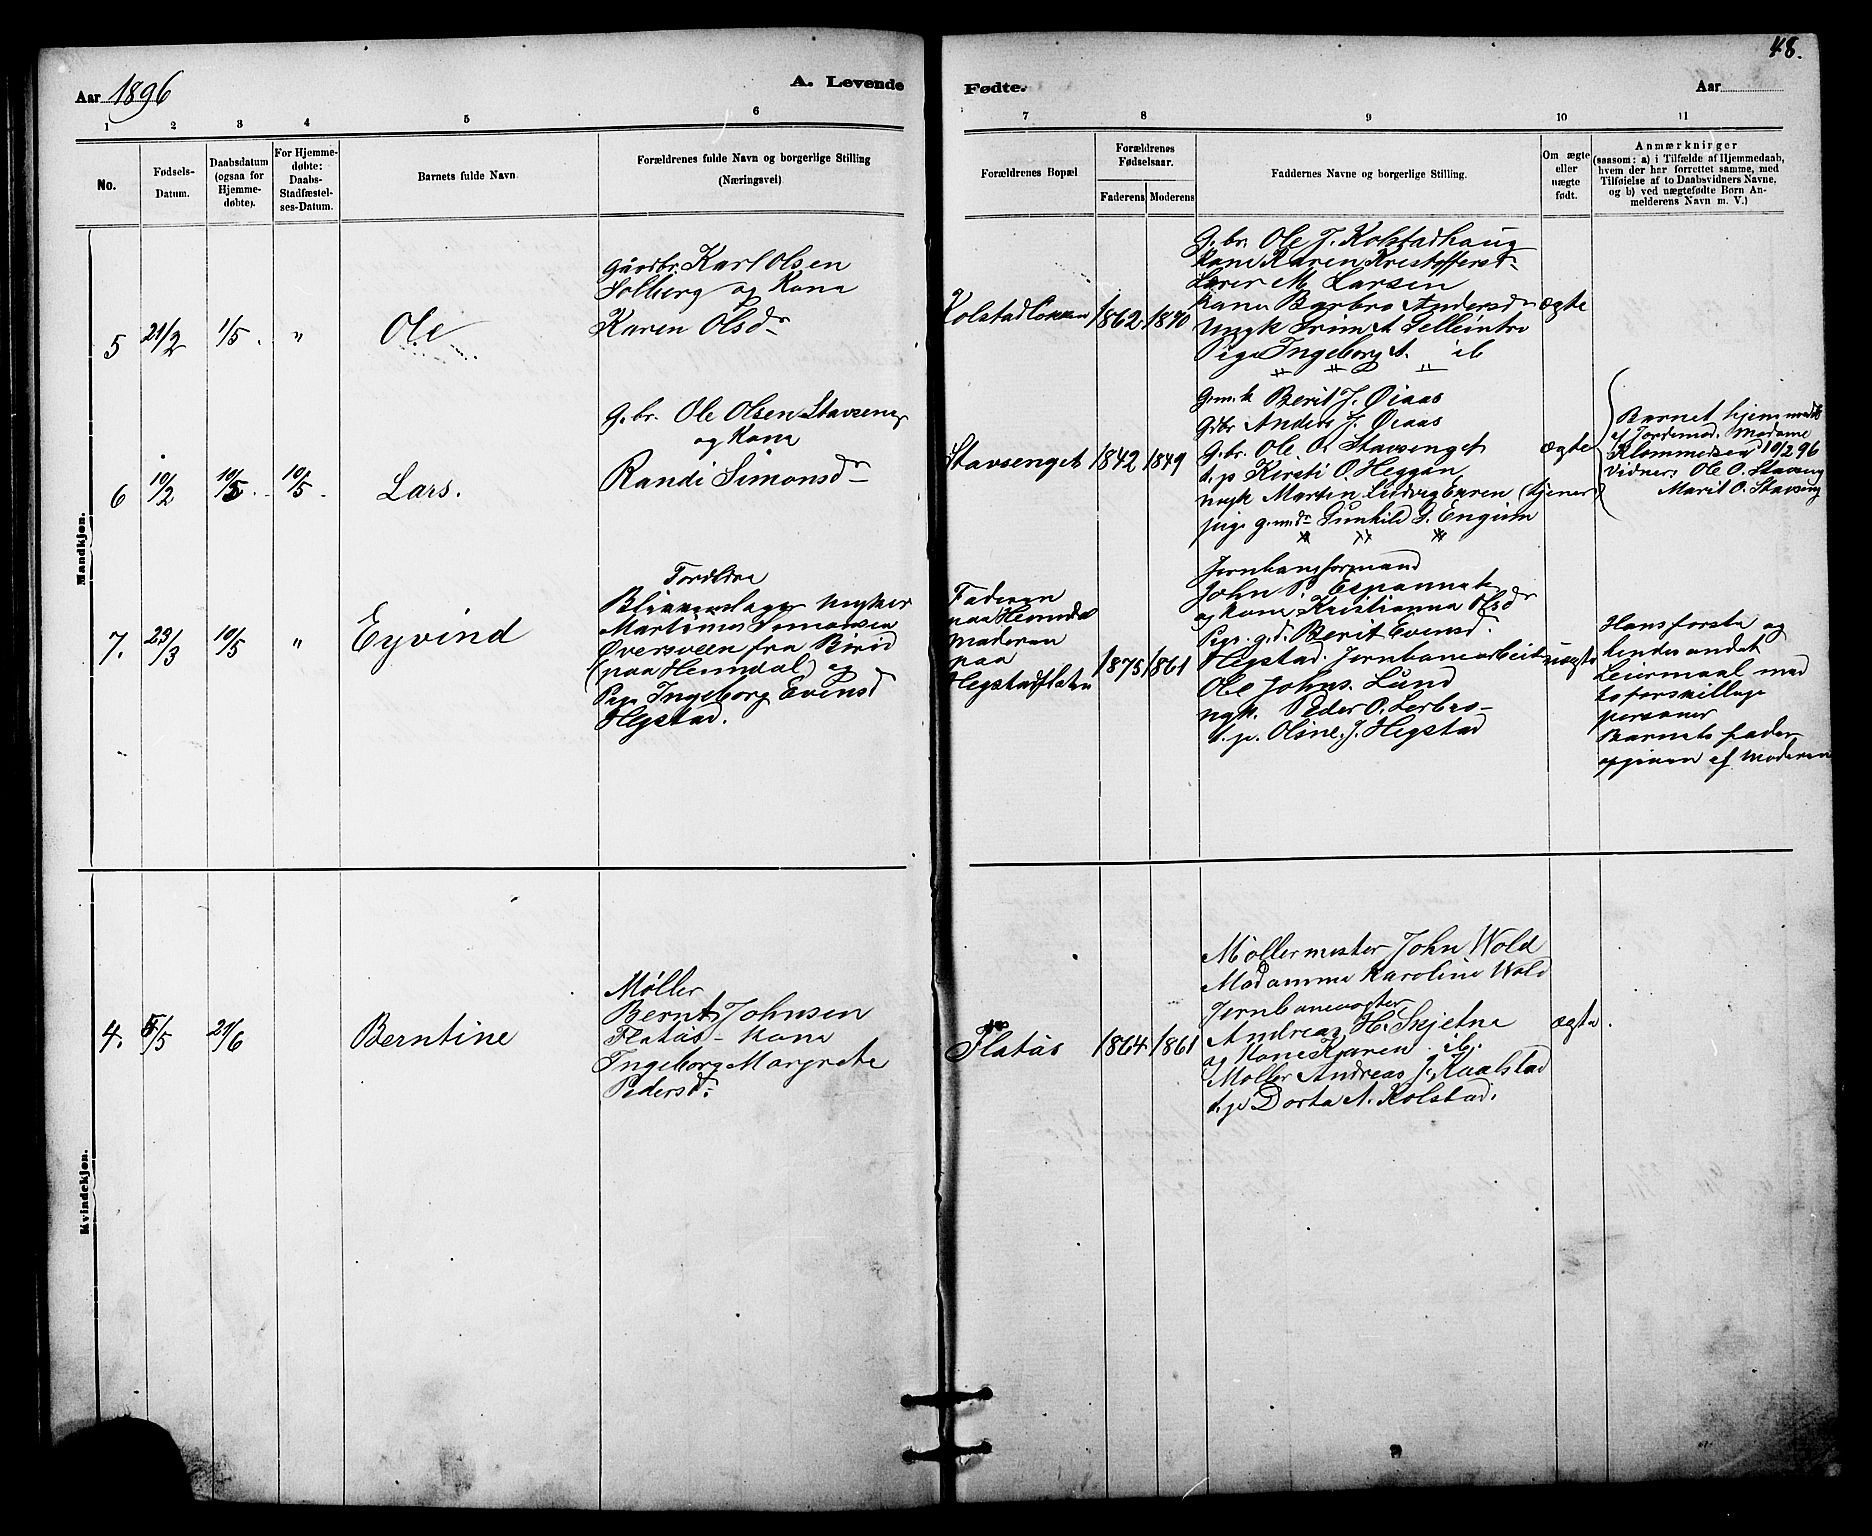 48.
Aar 1896
A. Levende
Fødte.
Aar
1 2 3 4 5 6 7 8 9 10 11
No.
Fødsels-
Datum.
Daabsdatum
(ogsaa for
Hjemme-
døbte).
For Hjemme-
døbte:
Daabs-
Stadfæstel-
ses-Datum.
Barnets fulde Navn
Forældrenes fulde Navn og borgerlige Stilling
(Næringsvei)
Forældrenes Bopæl
Forældrenes
Fødselsaar.
Faderens
Moderens
Faddernes Navne og borgerlige Stilling.
Om ægte
eller
uægte
født.
Anmærkninger
(saasom: a) i Tilfælde af Hjemmedaab,
hvem der har forrettet samme, med
Tilføielse af to Daabsvidners Navne,
og b) ved uægtefødte Børn An-
melderens Navn m. V.)
Mandkjøn.
5
21/2
1/5.
"
Ole
Gaardbr. Karl Olsen
Solberg og Kona
Karen Olsdr
1862
G. br. Ole J. Kolstadhaug
Kone Karen Kristoffersdr
Lærer M. Larsen
Kone Barbro Andersdr
Ungk
Pige Ingeborg A. ib
ægte
6
10/2
10/5.
10/5.
Lars.
G. br. Ole Olsen Stavseng
og Kona
Randi Simonsdr
Stavsenget
1842
1849
Gmk Berit J. Øiaas
Gdbr Anders J. Øiaas
G. br. Ole O. Stavsenget
t. p Kirsti O. Heggan
ungk Martin Ludvig (tjener)
pige Gunhild
ægte
Barnet hjemmedøbt
af Jordemod. Madame
Klemmetsen 10/2 96
Vidner: Ole O. Stavseng
Marit O. Stavseng
7.
23/3
10/5
"
Eyvind
Forældre
Martinus Simonsen
Øversveen fra Birid
(paa Heimdal) og
Pige Ingeborg Evensd
Hegstad.
Faderen
paa Heimdal
Moderen
paa
Hegstadflaten
1875
1861
Jernbaneformand
John P. Espannek
og Kone Kristianna Olsdr
Pige g. d. Berit Evensd.
Hegstad. Jernbanearbeit
Ole Johns. Lund
ungk. Peder O. Lerbro
t. p. Oline J. Hegstad
uægte
Hans første og
hendes andet
Leiermaal med
to forskjellige
personer
Barnets fader
opgiven af Moderen
Kvindekjøn.
4.
5/5
21/6
Berntine
Møller
Bernt Johnsen
Flatås - Kona
Ingeborg Margrete
Pedersdr.
Flatås
1864
1861
Møllermester John Wold
Madamme Karoline Wold
Jernbanevogter
Andreas H. Skjetne
og Kone Karen ib.
Møller Andreas J. Kualstad
t. p Dorta A. Kolstad.
ægte.